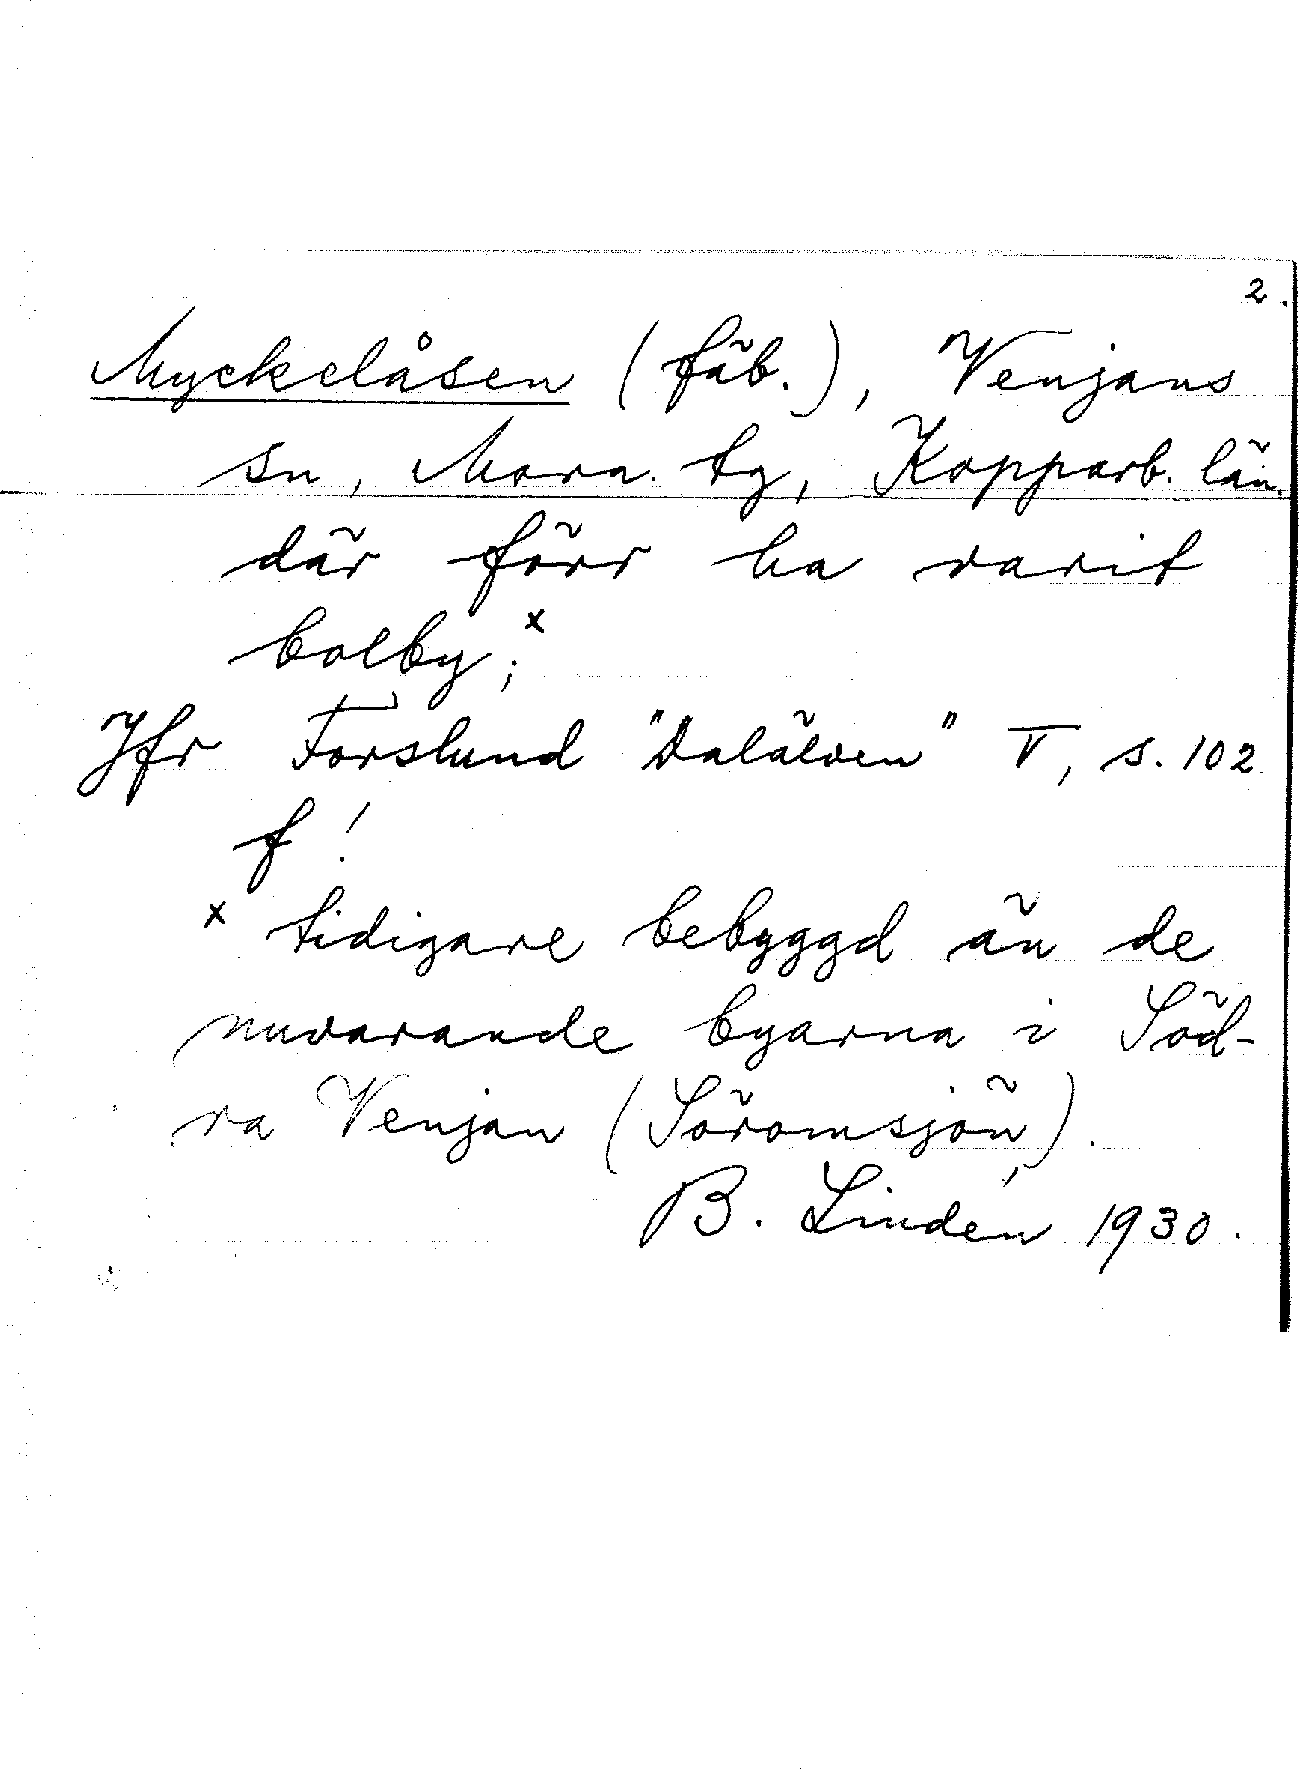 2.
Myckelåsen (fäb.), Venjans
sn, Mora tg, Kopparb. län.
där förr ha varit
bolby;ˣ
Jfr Forslund "Dalälven" V, s. 102
f!
ˣ tidigare bebyggd än de
nuvarande byarna i Söd-
ra Venjan (Söromsjön).
B. Lindén 1930.